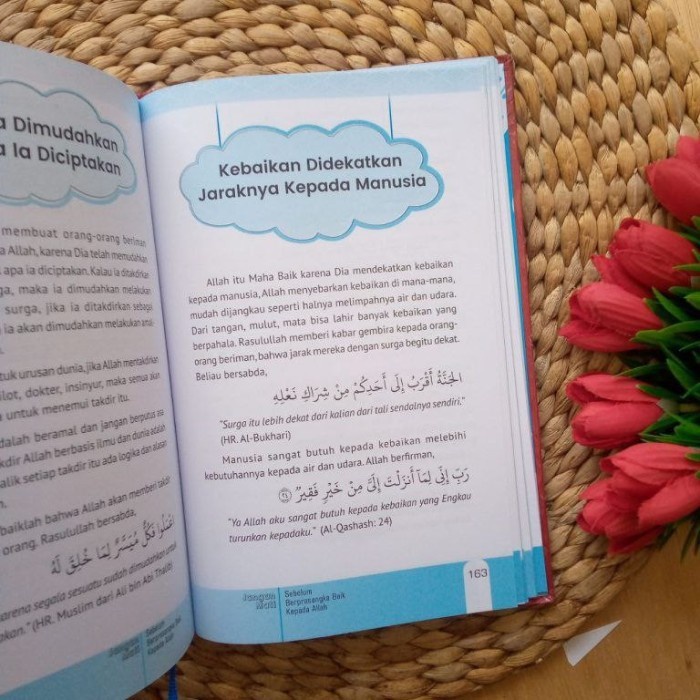 a Dimudahkan
a Ia Diciptakan
membuat orang-orang beriman
a Allah, karena Dia telah memudahkan
apa ia diciptakan. Kalau ia ditakdirkan
ga, maka ia dimudahkan melakukan
surga, jika ia ditakdirkan sebagai
ia akan dimudahkan melakukan amal-
tuk urusan dunia, jika Allah mentakdirkan
ilot, dokter, insinyur, maka semua akan
untuk menemui takdir itu.
dalah beramal dan jangan berputus asa
kdir Allah berbasis ilmu dan dunia adalah
alik setiap takdir itu ada logika dan alasan
baiklah bahwa Allah akan memberi takdir
orang. Rasulullah bersabda,
اعْمَلُوا فَكُلٌّ مُيَسَّرٌ لِمَا خُلِقَ لَهُ
karena segala sesuatu sudah dimudahkan untuk
akan." (HR. Muslim dari Ali bin Abi Thalib)
Jangan Mati
Sebelum
Berprasangka Baik
Kepada Allah
Kebaikan Didekatkan
Jaraknya Kepada Manusia
Allah itu Maha Baik karena Dia mendekatkan kebaikan
kepada manusia, Allah menyebarkan kebaikan di mana-mana,
mudah dijangkau seperti halnya melimpahnya air dan udara.
Dari tangan, mulut, mata bisa lahir banyak kebaikan yang
berpahala. Rasulullah memberi kabar gembira kepada orang-
orang beriman, bahwa jarak mereka dengan surga begitu dekat.
Beliau bersabda,
الْجَنَّةُ أَقْرَبُ إِلَى أَحَدِكُمْ مِنْ شِرَاكِ نَعْلِهِ
"Surga itu lebih dekat dari kalian dari tali sendalnya sendiri."
(HR. Al-Bukhari)
Manusia sangat butuh kepada kebaikan melebihi
kebutuhannya kepada air dan udara. Allah berfirman,
رَبِّ إِنِّي لِمَا أَنْزَلْتَ إِلَيَّ مِنْ خَيْرٍ فَقِيرٌ ﴿٢٤﴾
"Ya Allah aku sangat butuh kepada kebaikan yang Engkau
turunkan kepadaku." (Al-Qashash: 24)
Jangan
Mati
Sebelum
Berprasangka Baik
Kepada Allah
163